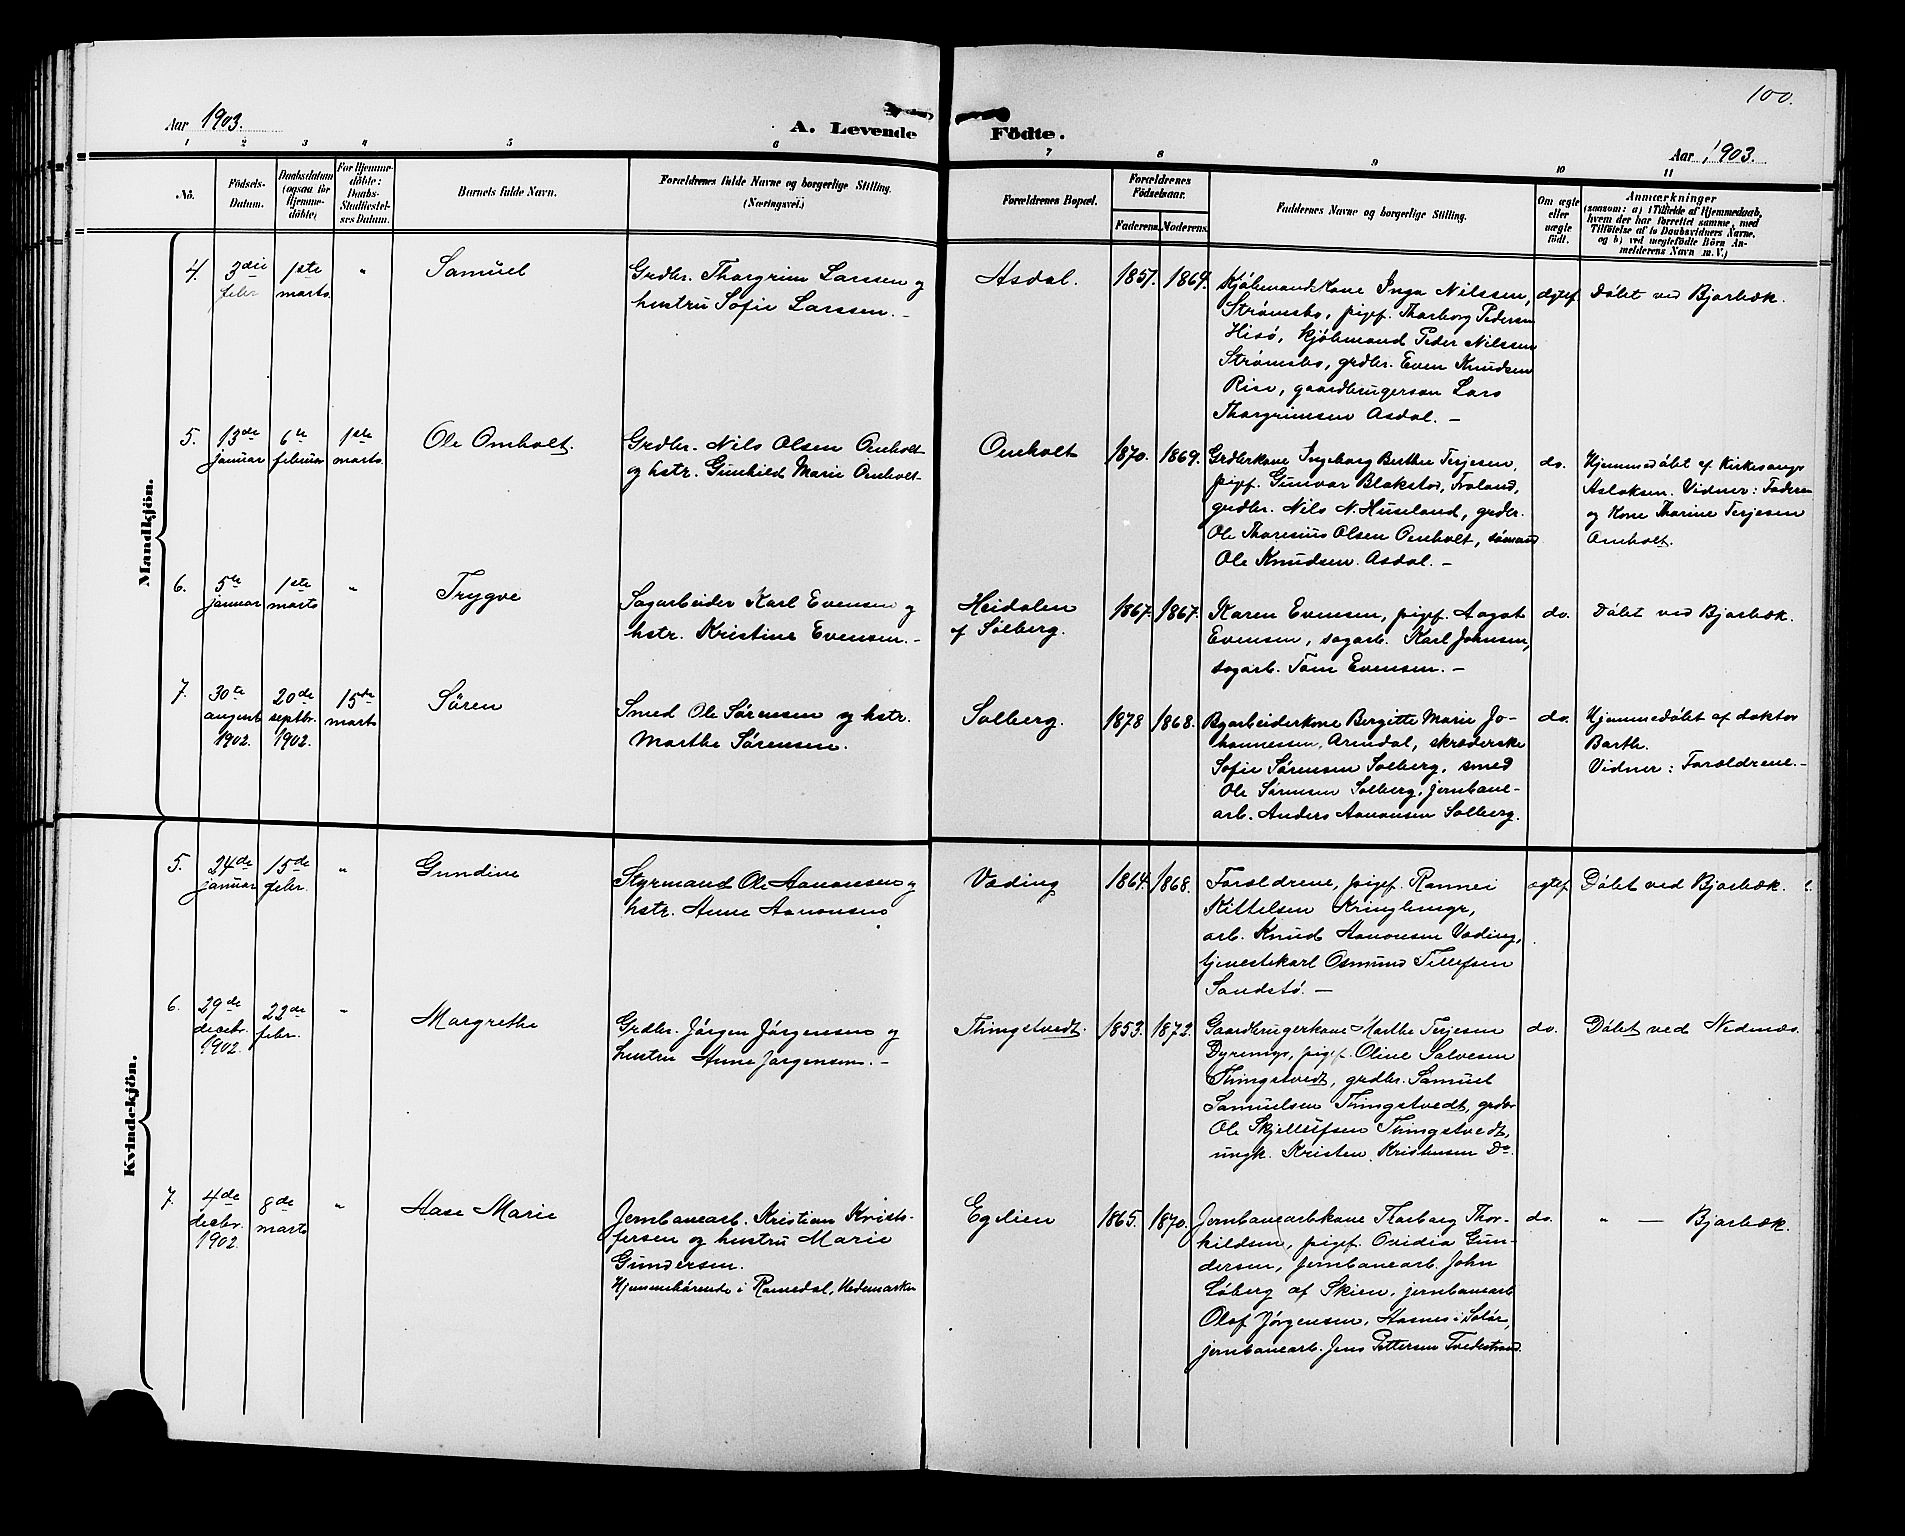 100.
Aar 1903.
A. Levende Födte.
Aar 1903.
1 2 3 4 5 6 7 8 9 10 11
No.
Födsels-
Datum.
Daabsdatum
(ogsaa for
Hjemme-
döbte)
For Hjemme-
döbte:
Daabs-
Stadfæstel-
ses Datum.
Barnets fulde Navn.
Forældrenes fulde Navne og borgerlige Stilling.
(Næringsvei.)
Forældrenes Bopæl.
Forældrenes
Födselsaar.
Faderens. Moderens.
Faddernes Navne og borgerlige Stilling.
Om ægte
eller
uægte
født.
Anmærkninger
(saasom: a) i Tilfælde af Hjemmedaab,
hvem der har forrettet samme, med
Tilföielse af to Daabsvidners Navne,
og b) ved uegtefödte Börn An-
melderens Navn m. V.)
Mandkjön.
4. 3die febr 1ste marts "
Samuel
Grdbr. Thorgrim Larssen og
hustru Sofie Larssen. –
Asdal. 1857. 1869.
Kjøbmand Kone Inga Nilssen,
Strømsbo, pigef. Tharborg Pedersen
Hisø, kjøbmand Peder Nilssen
Strømsbo, grdbr. Even Knudsen
Rise, gaardbrugersøn Lars
Thorgrimsen Asdal. –
ægtef. Døbt ved Bjorbæk.
5. 13de januar 6te februar 1ste marts.
Ole Omholt.
Grdbr. Nils Olsen Omholt
og hstr. Gunhild Marie Omholt
Omholt 1870. 1869.
Grdbrkone Ingeborg Berthe Terjesen,
pigef. Gunvor Blakstad, Froland,
grdbr. Nils N. Huseland, grdbr.
Ole Tharesius Olsen Omholt, sømand
Ole Knudsen Asdal. –
do. Hjemmedøbt af Kirkesanger
Aslaksen. Vidner: Faderen
og Kone Tharine Terjesen
Omholt.
6. 5te januar 1ste marts "
Trygve
Sagarbeider Karl Evensen og
hstr. Kristine Evensen. –
Heidalen
af Solberg.
1867. 1867.
Karen Evensen, pigef. Aagot
Evensen, sagarb. Karl Johnsen,
sagarb. Tom Evensen. –
do. Døbt ved Bjorbæk.
7. 30te august 1902 20de septbr. 1902. 15de marts
Søren
Smed Ole Sørensen og hstr.
Marthe Sørensen.
Solberg. 1878 1868.
Byarbeiderkone Bergitte Marie Jo-
hannessen, Arendal, skræderske
Sofie Sørensen Solberg, smed
Ole Sørensen Solberg, jernbane-
arb. Anders Aanonsen Solberg.
do. Hjemmedøbt af doktor
Barth.
Vidner: Forældrene. –
Kvindekjön.
5. 24de januar 15de febr. "
Gundine
Styrmand Ole Aanonsen og
hstr. Anne Aanonsen
Væding 1864. 1868.
Forældrene, pigef. Rannei
Kittelsen Kringlemyr,
arb. Knud Aanonsen Væding,
tjenestekarl Osmund Tellefsen
Sandstø. –
ægtef. Døbt ved Bjorbæk.
6. 29de decbr. 1902. 22de febr. "
Margrethe
Grdbr. Jørgen Jørgensen og
hustru Anne Jørgensen. –
Thingstvedt. 1853. 1872.
Gaardbrugerkone Marthe Terjesen
Dyrmyr, pigef. Oline Salvesen
Thingstvedt, grdbr. Samuel
Samuelsen Thingstvedt, grdbr
Ole Skjellufsen Thingstvedt,
ungk. Kristen Kristensen Do.
do. Døbt ved Nednæs.
7. 4de decbr. 1902. 8de marts "
Aase Marie
Jernbanearb. Kristian Kristo-
fersen og hustru Marie
Gundersen.
Hjemmehørende i Romedal, Hedemarken
Egelien 1865. 1870.
Jernbanearbkone Tharborg Thor-
kildsen, pigef. Ovidia Gun-
dersen, jernbanearb. John
Løberg af Skien, jernbanearb
Olaf Jørgensen, Hasnes i Solør,
jernbanearb. Jens Pettersen Tvedestrand.
do. " — Bjorbæk.